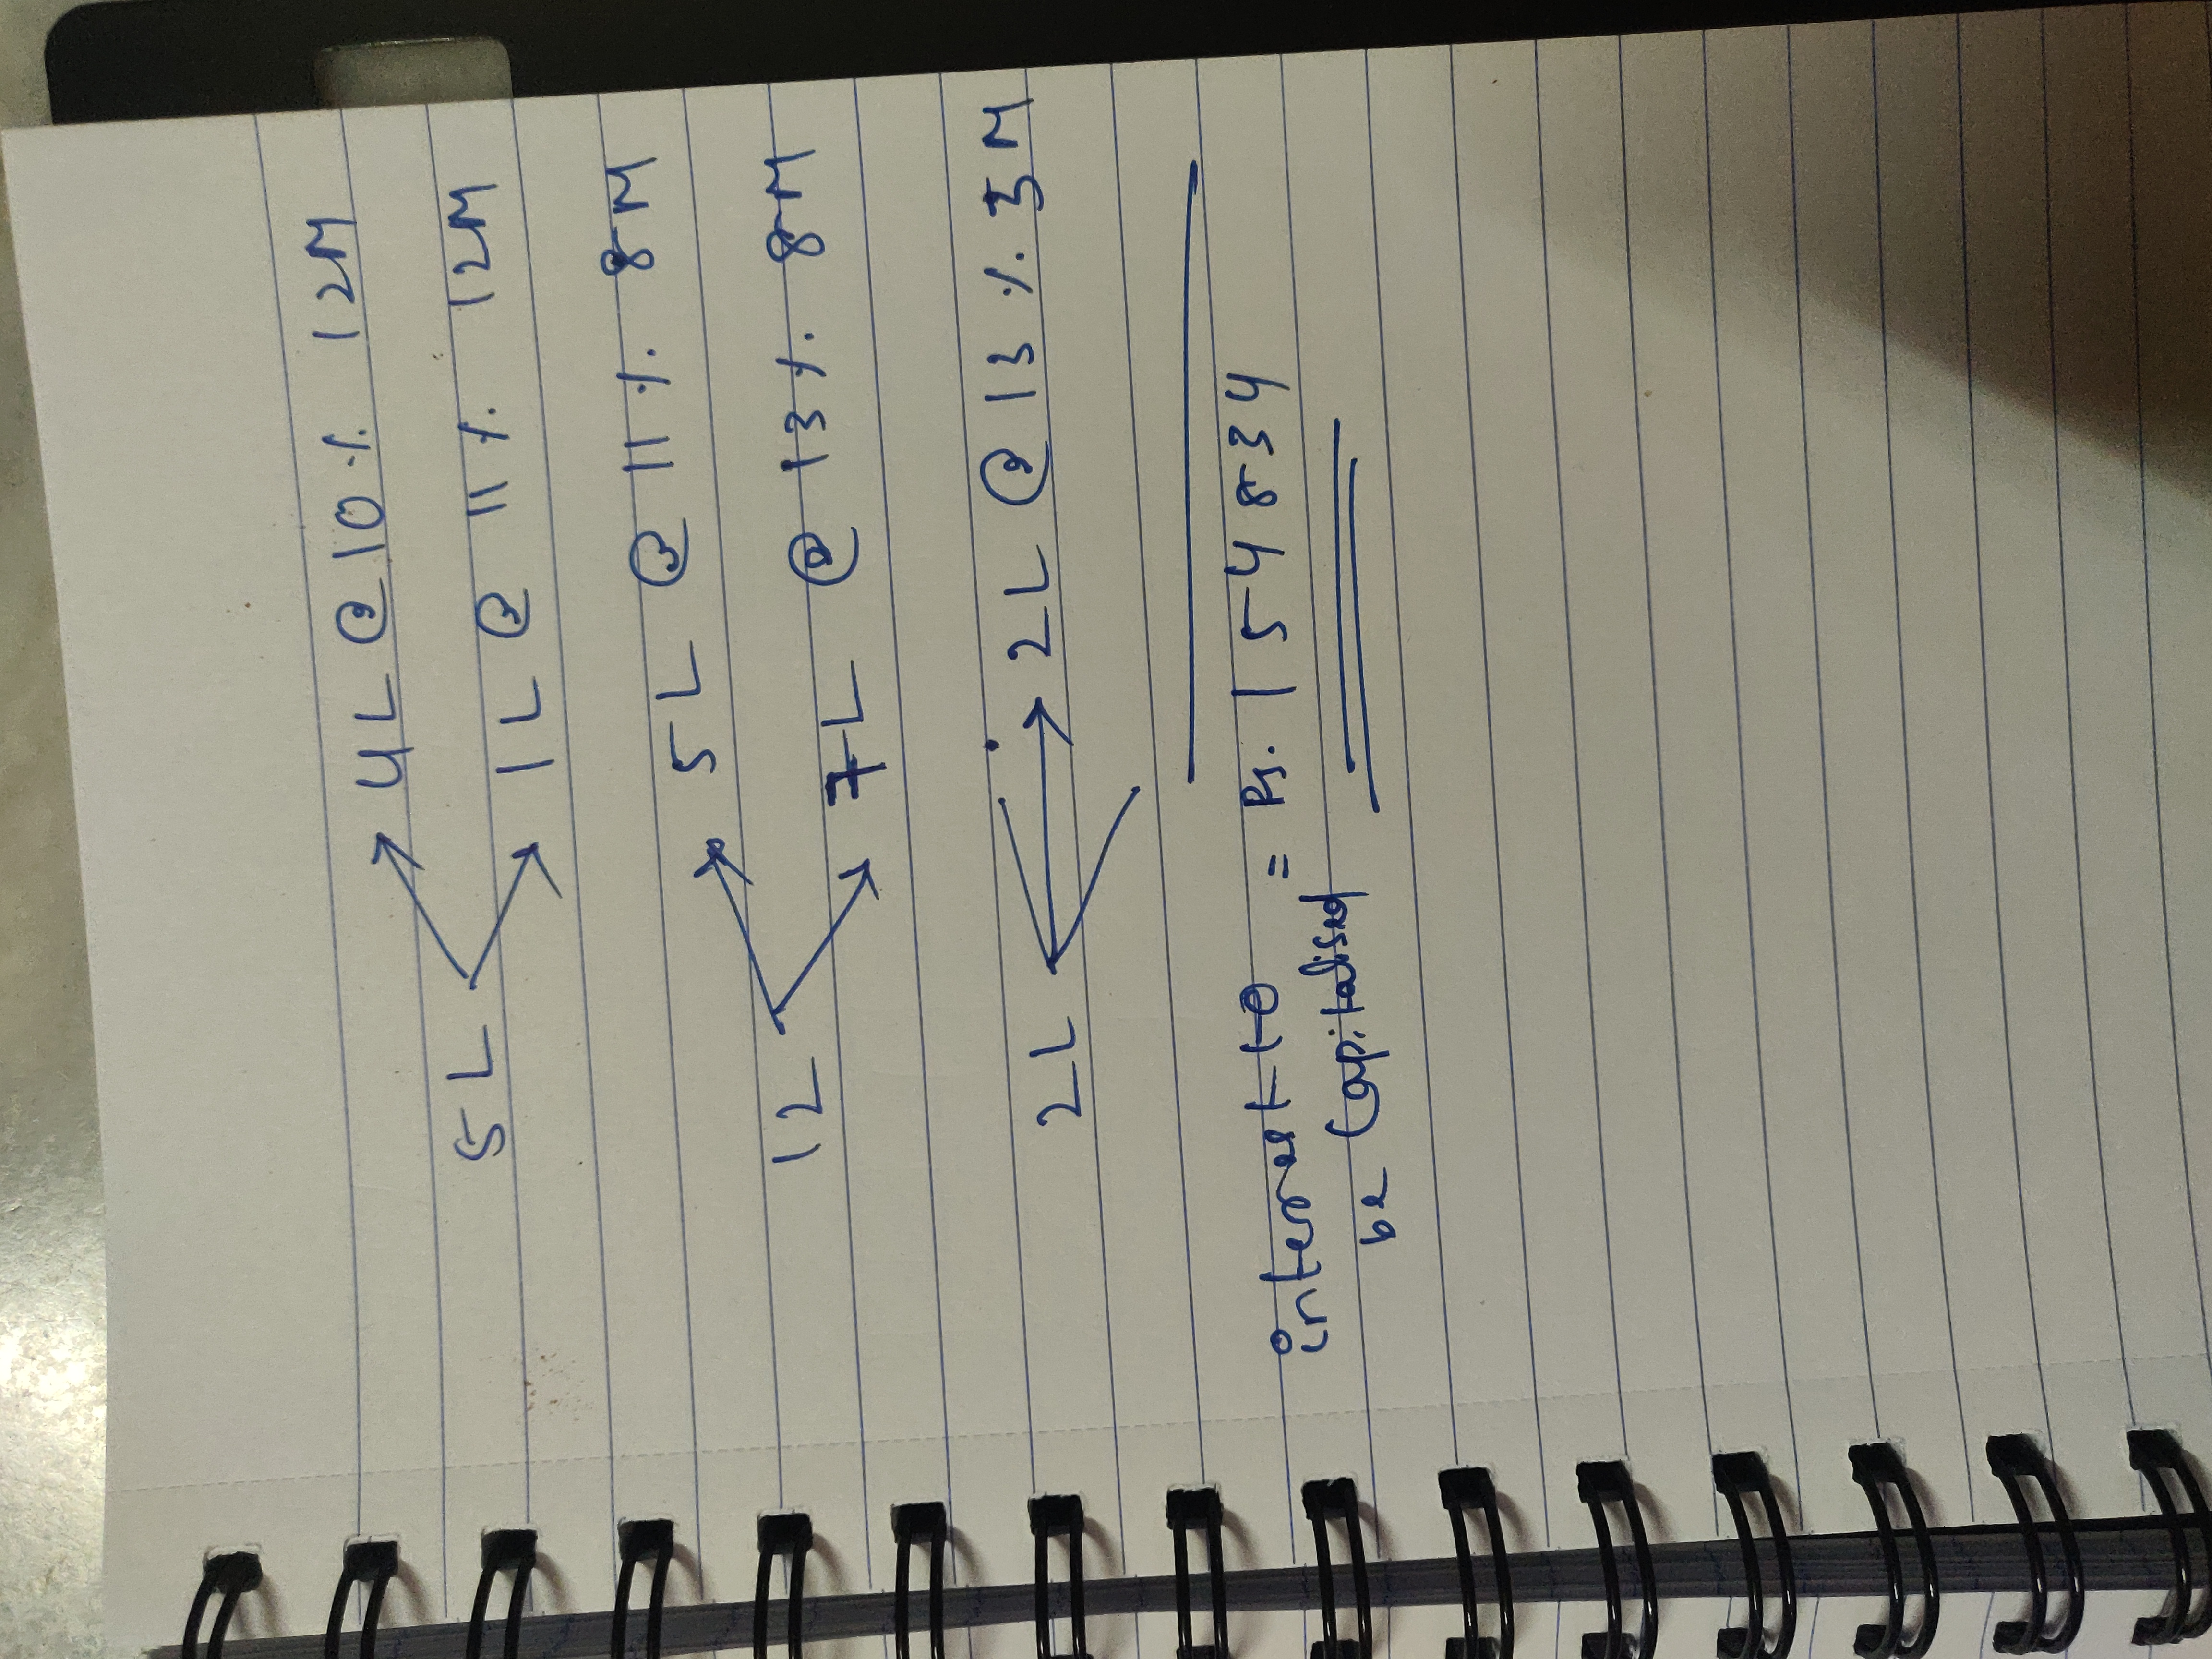 4L @ 10 % 12M
5L
1L @ 11 % 12M
5L @ 11 % 8M
12L
7L @ 13 % 8M
2L → 2L @ 13 % 3M
interest to = Rs. 154834
be Capitalised